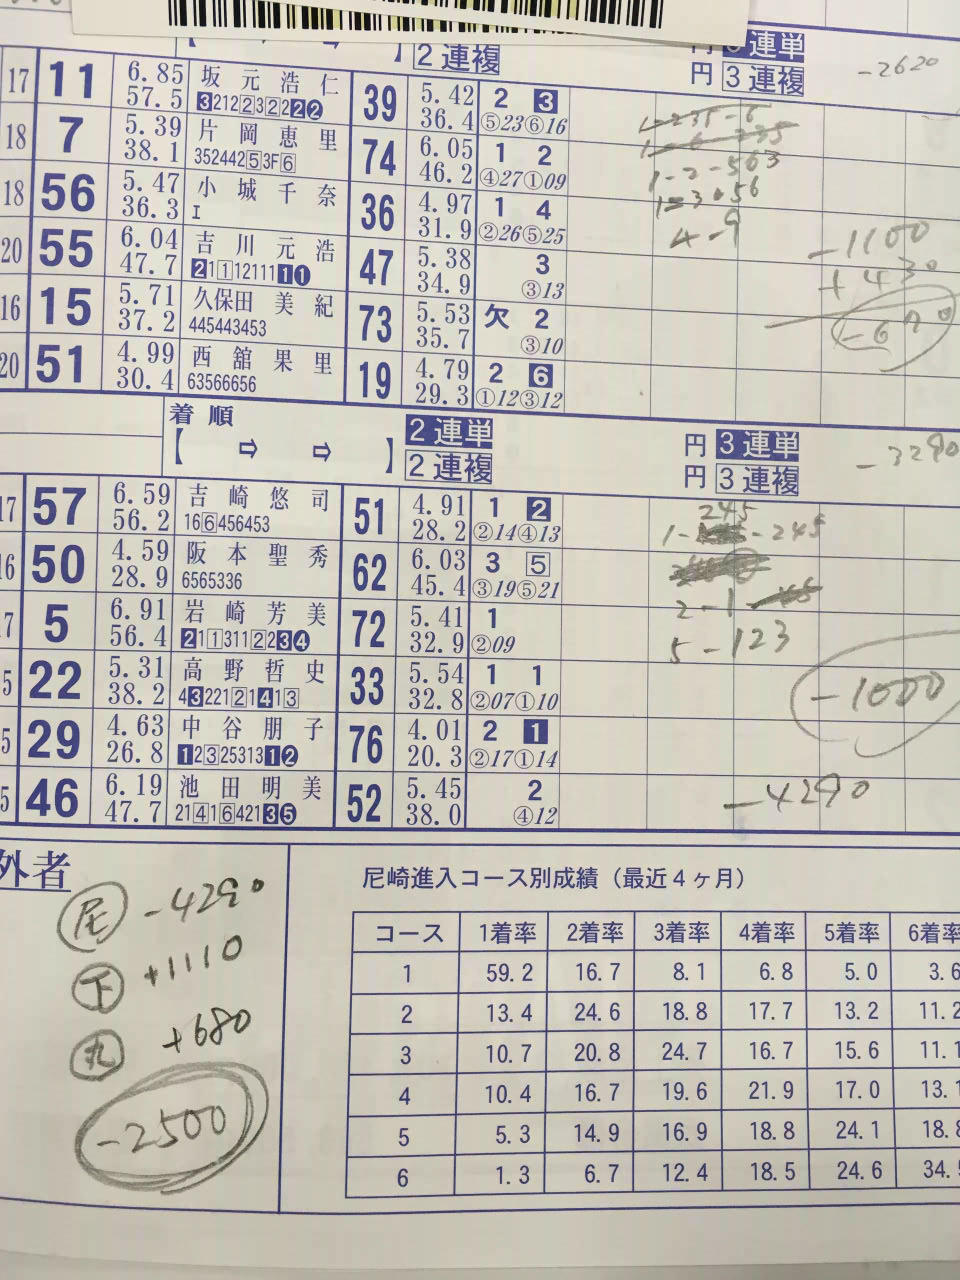 【 ⇨ ⇨ 】 2連複 円 3連単
円 3連複 -2620
17 11 6.85 57.5 坂元浩仁 3212②3②222 39 5.42 36.4 2 3 ⑤23⑥16
18 7 5.39 38.1 片岡恵里 35244253F6 74 6.05 46.2 1 2 ④27①09
18 56 5.47 36.3 小城千奈 I 36 4.97 31.9 1 4 ②26⑤25
20 55 6.04 47.7 吉川元浩 211121111 1 47 5.38 34.9 3 ③13
16 15 5.71 37.2 久保田美紀 445443453 73 5.53 35.7 欠 2 ③10
20 51 4.99 30.4 西舘果里 63566656 19 4.79 29.3 2 6 ①12③12
1-235-6
1-6-235
1-2-563
1=3-56
4-9
-1100
+430
-670
着順
【 ⇨ ⇨ 】 2連単 円 3連単
2連複 円 3連複 -3290
17 57 6.59 56.2 吉崎悠司 166456453 51 4.91 28.2 1 2 ②14④13
16 50 4.59 28.9 阪本聖秀 6565336 62 6.03 45.4 3 5 ③19⑤21
17 5 6.91 56.4 岩崎芳美 2113112234 72 5.41 32.9 1 ②09
5 22 5.31 38.2 高野哲史 4322121413 33 5.54 32.8 1 1 ②07①10
5 29 4.63 26.8 中谷朋子 1232531312 76 4.01 20.3 2 1 ②17①14
5 46 6.19 47.7 池田明美 2141642135 52 5.45 38.0 2 ④12
245
1- -245
2-1
5-123
-1000
-4290
外者
尾 -4290
下 +1110
丸 +680
-2500
尼崎進入コース別成績（最近4ヶ月）
コース 1着率 2着率 3着率 4着率 5着率 6着率
1 59.2 16.7 8.1 6.8 5.0 3.6
2 13.4 24.6 18.8 17.7 13.2 11.2
3 10.7 20.8 24.7 16.7 15.6 11.1
4 10.4 16.7 19.6 21.9 17.0 13.1
5 5.3 14.9 16.9 18.8 24.1 18.8
6 1.3 6.7 12.4 18.5 24.6 34.5